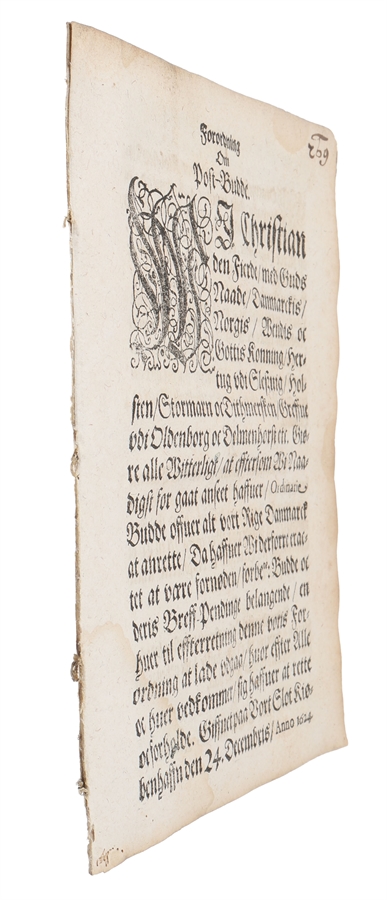 209
Forordning
Om
Post-Budde.
WJ Christian
den Fierde/med Guds
Naade/Danmarckis/
Norgis/Wendis oc
Gottis Konning/Her-
tug vdi Slesuig/Hol-
sten/Stormarn oc Dithmersten/Greffue
vdi Oldenborg oc Delmenhorst etc. Giø-
re alle Witterligt/at effterson Wi Naa-
digst for gaat anseet haffuer/Ordinarie
Budde offuer alt vort Rige Danmarck
at anrette/Da haffuer Wi derforre erac-
tet at være fornøden/forbe: Budde oc
deris Breff-Pendinge belangende/en
huer til effterretning denne voris For-
ordning at lade vdgaa/huor effter Alle
oc huer vedkommer/sig hafuer at rette
oc forholde. Giffuet paa Vort Slot Kiø-
benhaffn den 24. Decembris/Anno 1624